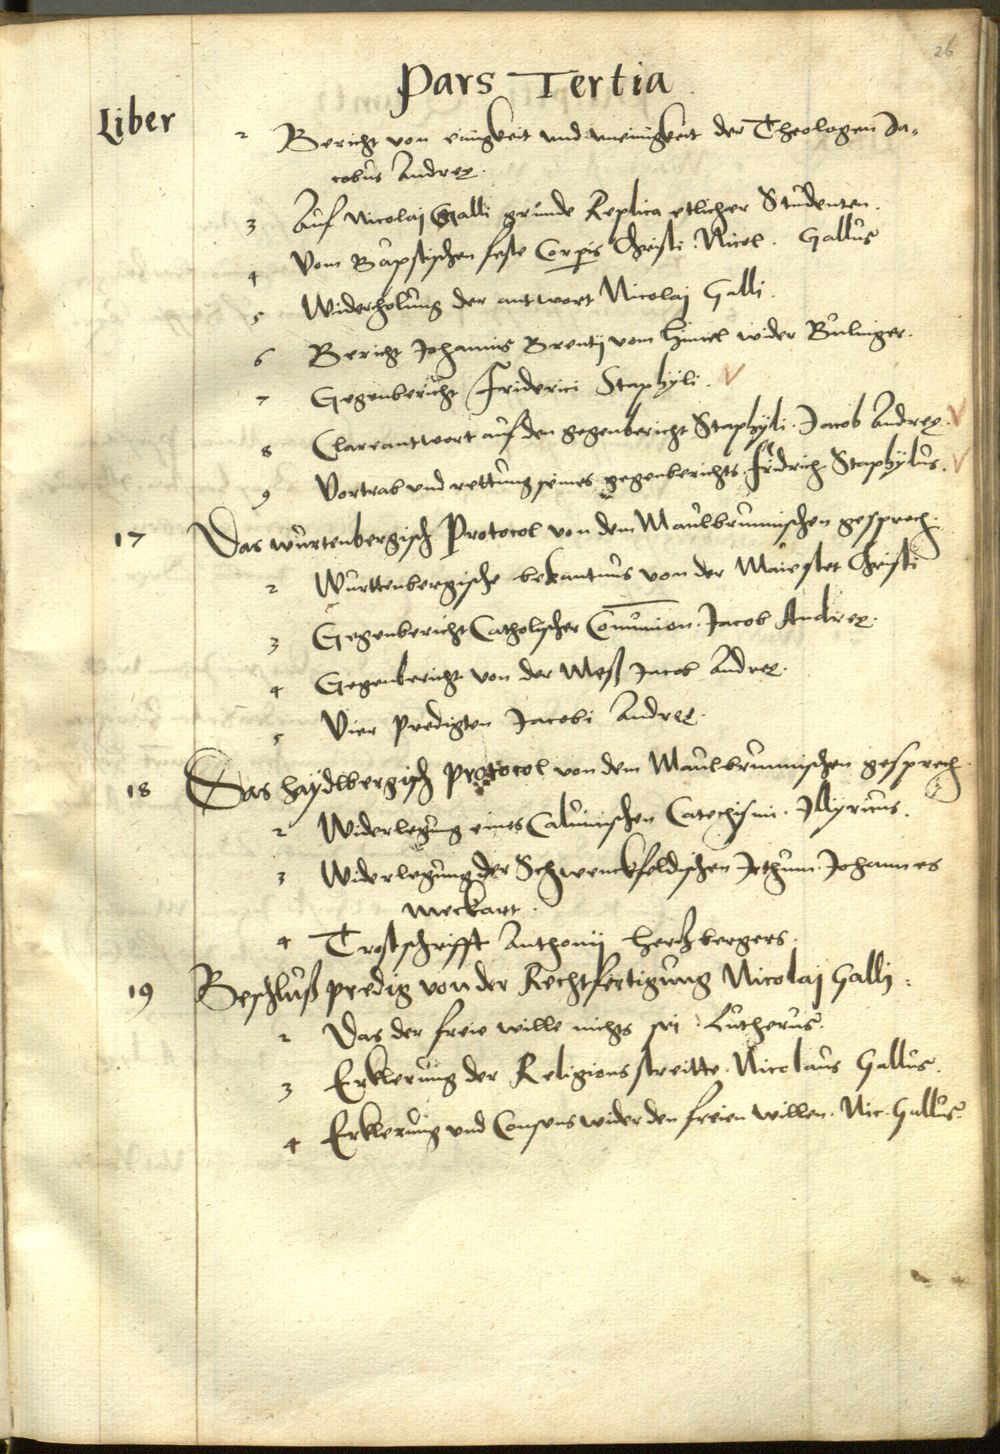 26
Pars Tertia
Liber
2 Bericht von einigkeit und uneinigkeit der Theologen Ja-
cobus Andreę.
3 Auf Nicolaj Galli gründe Replica etlicher Studenten.
4 Vom Bäpstischen feste Corporis Christi. Nicol. Gallus
5 Widerholung der antwort Nicolaj Galli.
6 Bericht Johannis Brentij vom himel wider Bulinger.
7 Gegenbericht Friderici Staphyli.
8 Clare antwort auf den gegenbericht Staphyli. Jacob Andreę.
9 Vortrab und rettung seines gegenberichts. Fridrich Staphylus.
17 Das würtenbergisch Protocol von dem Maulbrunnischen gesprech.
2 Württenbergische bekantnus von der Maiestet Christi
3 Gegenbericht Catholischer Comunion. Jacob Andreę.
4 Gegenbericht von der Meß Jacob Andreę.
5 Vier predigten Jacobi Andreę.
18 Das haydlbergisch protocol von dem Maulbrunnischen gesprech.
2 Widerlegung eines Calvinischen Catechismi. Illyricus.
3 Widerlegung der Schwenckfeldischen Irthum. Johannes
Meckart.
4 Trostschrifft Anthonij hertzbergers.
19 Beschluß predig von der Rechtfertigung Nicolaj Galli.
2 Das der freie wille nichts sei. Lutherus.
3 Erklerung der Religions streitte. Nicolaus Gallus.
4 Erklerung und Consens wider den freien willen. Nic. Gallus.